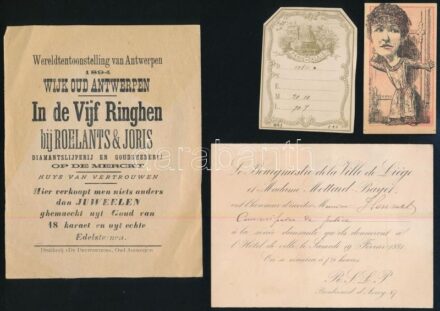 Wereldtentoonstelling van Antwerpen
1894
WIJK OUD ANTWERPEN
In de Vijf Ringhen
bij ROELANTS & JORIS
DIAMANTSLIJPERIJ EN GOUDSMEDERIJ
OP DE MERCKT
HUYS VAN VERTROUWEN
Hier verkoopt men niets anders
dan JUWEELEN
ghemaeckt uyt Goud van
18 karaet en uyt echte
Edelsteenen.
Drukkerij
Oud Antwerpen
Le Bourgmestre de la Ville de Liège
et Madame Mottard
ont l'honneur d'inviter Monsieur
Commissaire de police
à la soirée dansante qui se donnera à
l'Hôtel de ville, le Samedi 19 Février 1881
On se réunira à 8 heures
R.S.L.P.
Boulevard d'Avroy, 87